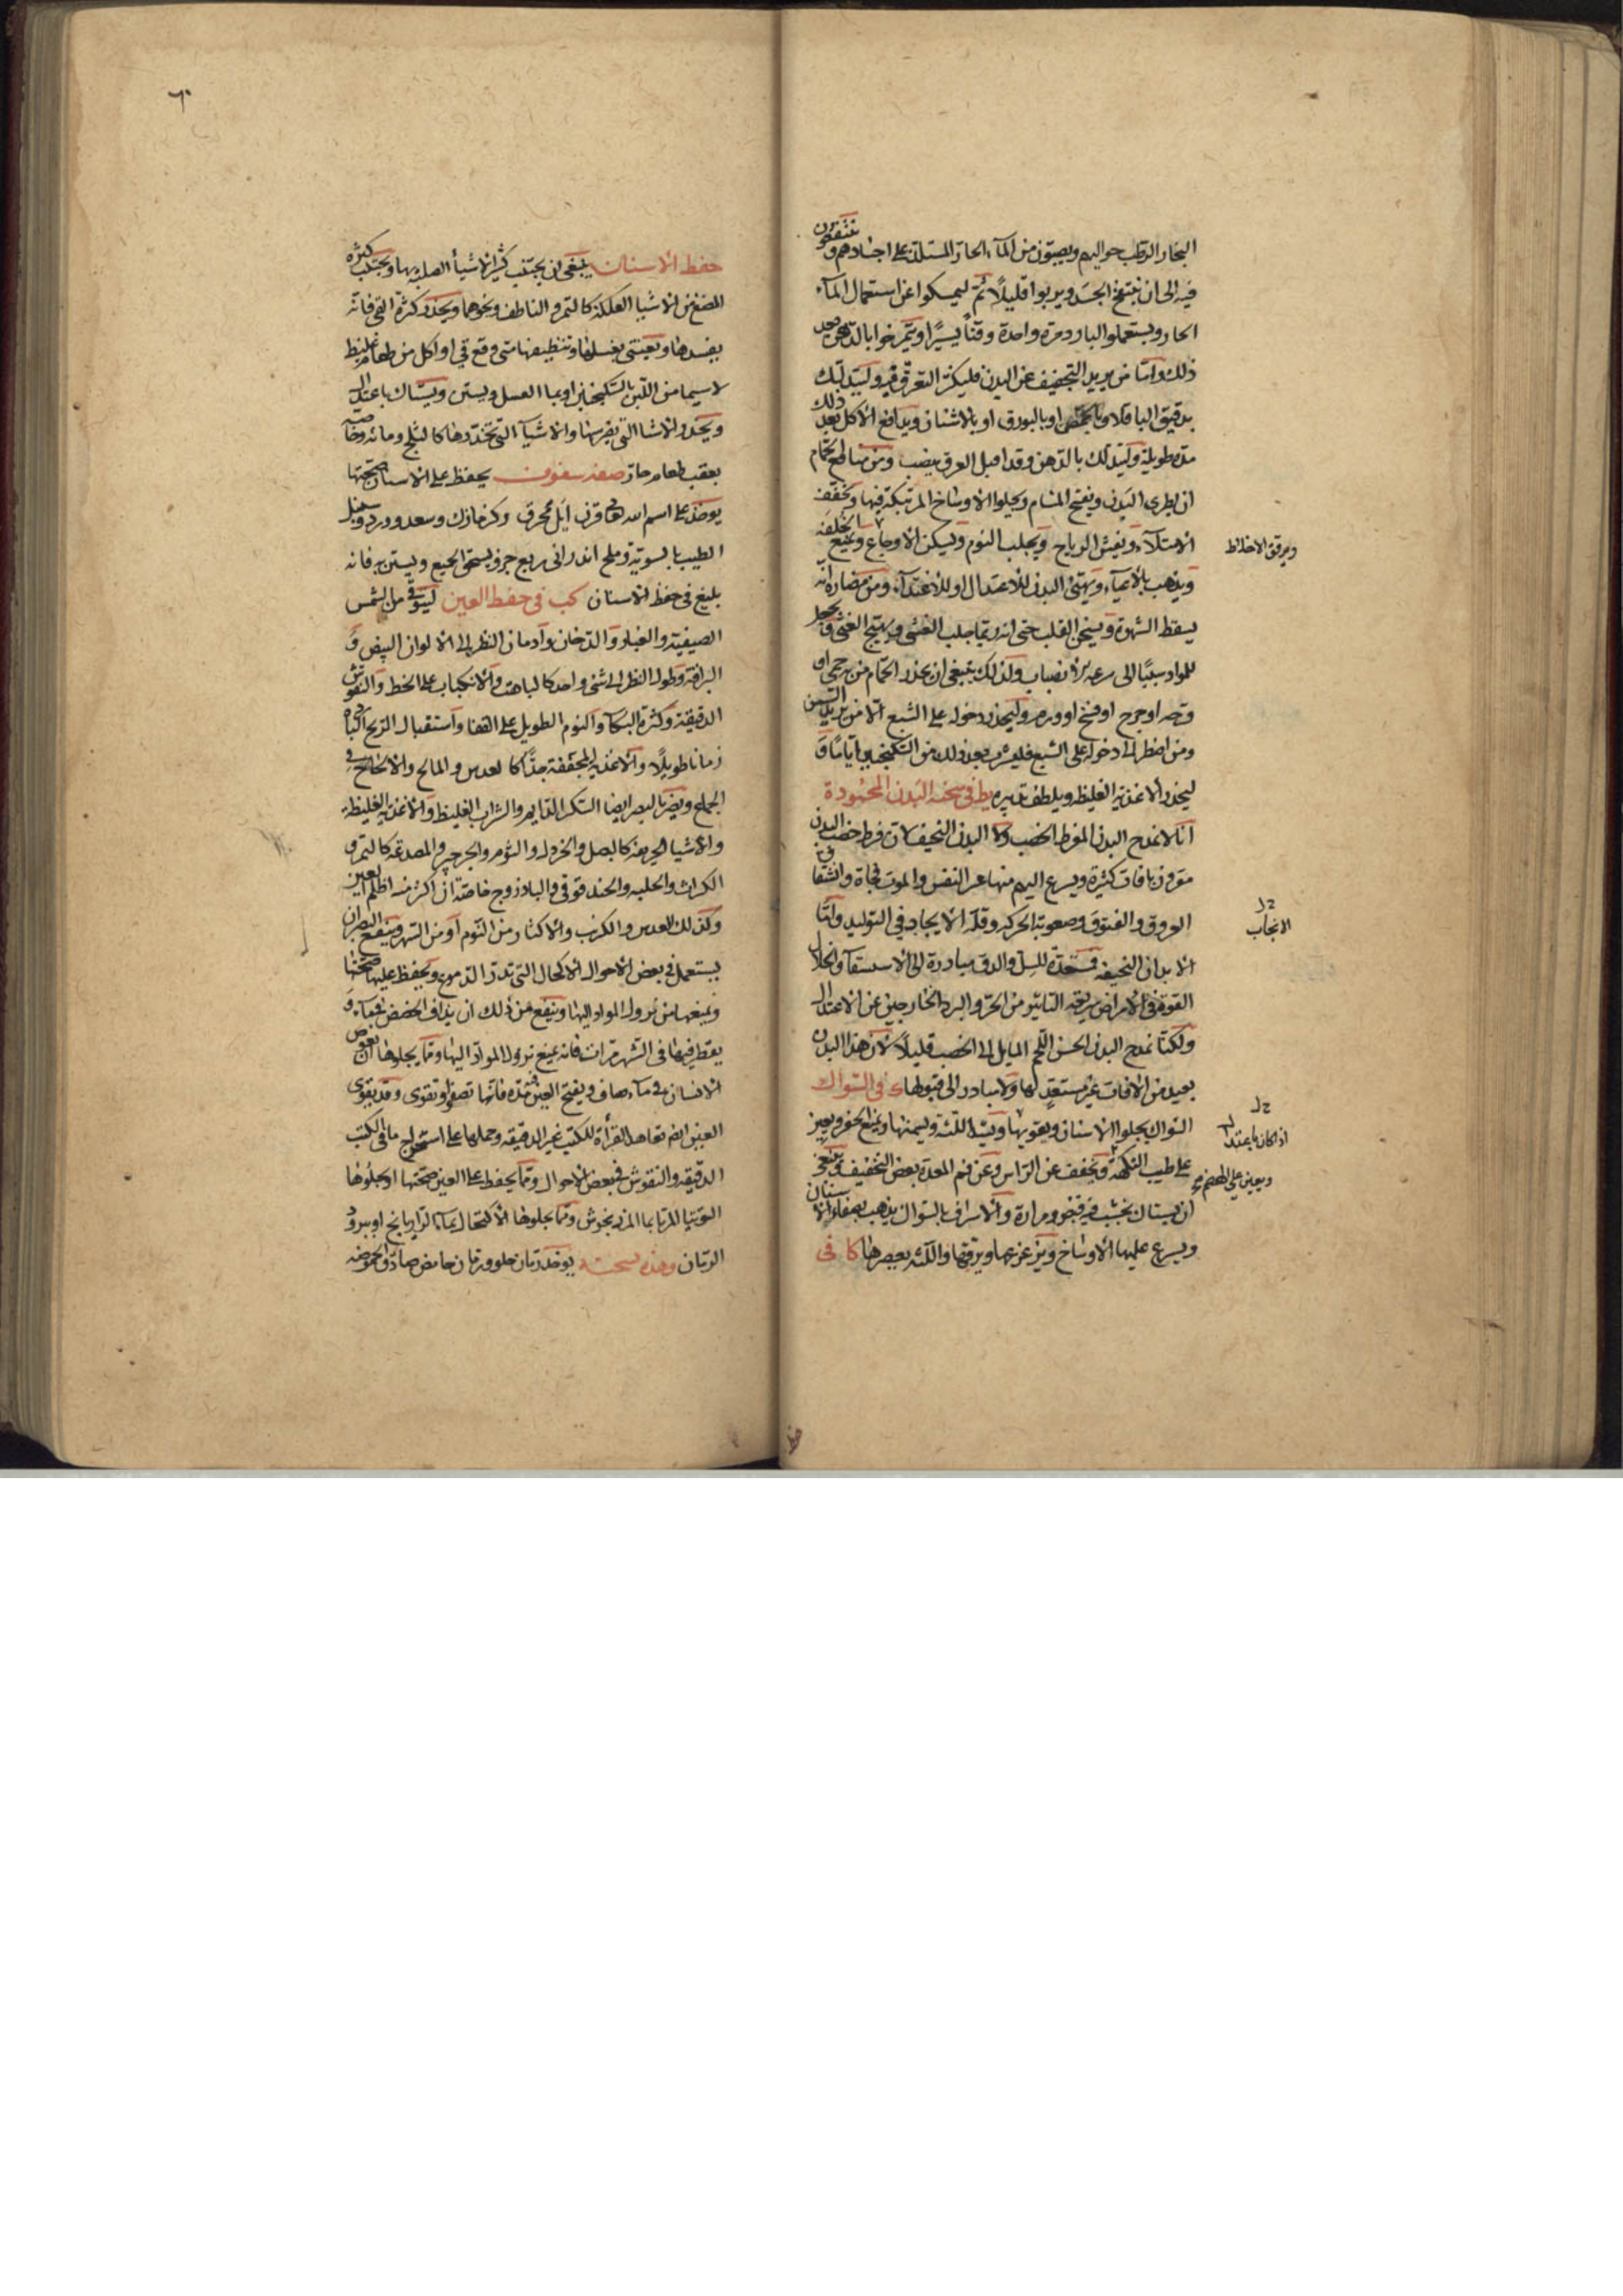 البخار الرطب حواليهم ويصبون من الماء الحار المستلذ على اجسادهم وينتقعون
فيه الى ان ينتفخ الجسد ويربوا قليلا ثم ليمسكوا عن استعمال الماء
الحار ويستعملوا البارد مرة واحدة وقتا يسيرا ويتمرخوا بالدهن بعد
ذلك واما من يريد التجفيف عن البدن فليكثر التعرق فيه وليتدلك
بدقيق الباقلا وبالحمص او بالبورق او بالاشنان ويدافع الاكل بعد ذلك
مدة طويلة وليتدلك بالدهن وقد اقبل العرق يصب ومن منافع الحمام
ان يطرى البدن ويفتح المسام ويجلوا الاوساخ المرتبكة فيها ويخفف
الامتلاء ويفش الرياح ويجلب النوم ويسكن الاوجاع ويمنع الخلفة
ويرقق الاخلاط
ويذهب بالاعياء ويهيئ البدن للاعتدال او للاغتذاء ومن مضاره انه
يسقط الشهوة ويسخن القلب حتى انه ربما جلب الغشى ويهيج الغثى ويجعل
للمواد سببا الى سرعة الانصباب ولذلك ينبغى ان يحذر الحمام من به حمى او
قرحه او جرح او فسخ او ورم وليحذر دخوله على الشبع الا من يريد التسمن
ومن اضطر الى دخوله على الشبع فليشرب بعد ذلك من السكنجبين اياما و
ليحذر الاغذية الغليظه ويلطف تدبيره يط فى سحنه البدن المحمودة
انا لا نمدح البدن المفرط الخصب ولا البدن النحيف لان فرط خصب البدن
مقرون بافات كثيرة ويسرع اليهم منها عسر النفس والموت فجاة وانشقاق
العروق والفتوق وصعوبة الحركه وقلة الايجاد فى التوليد واما
الانجاب
الابدان النحيفه فمستعدة للسل والدق مبادرة الى الاستسقا وانحلال
القوة فى الامراض سريعة التاثير من الحر والبرد الخارجين عن الاعتدال
ولكنا نمدح البدن الحسن اللحم المايل الى الخصب قليلا لان هذا البدن
بعيد من الافات غير مستعد لها ولا مبادر الى قبولها ك فى السواك
السواك يجلوا الاسنان ويقويها ويشد اللثة ويسمنها ويمنع الحفر ويعين
اذا كان باعتدال
على طيب النكهة ويخفف عن الراس وعن فم المعدة بعض التخفيف وينبغى
ويعين على الهضم
ان يستاك بخشب فيه قبض ومرارة والاسراف بالسواك يذهب بصفاء الاسنان
ويسرع عليها الاوساخ ويزعزعها ويرققها واللثه يعصرها كا فى
٦٠
حفظ الاسنان ينبغى ان يجتنب كثير الاشيأ الصلبة بها ويجتنب كثره
المضغ من الاشيا العلكة كالتمر والناطف ونحوهما ويحذر كثرة القى فانه
يفسدها ويعتنى بغسلها وتنظيفها متى وقع قى او اكل من طعام غليظ
لاسيما من اللبن بالسكنجبين او بما العسل ويستن ويستاك باعتدال
ويحذر الاشيا التى يضرسها والاشيآ التى تخدرها كالثلج ومائه وخاصه
بعقب طعام حار صفه سفوف يحفظ على الاسنان صحتها
يوخذ على اسم الله قرن ايل محرق وكزمازك وسعد وورد وسنبل
الطيب بالسوية وملح اندرانى ربع جزو يسحق الجميع ويستن به فانه
بليغ فى حفظ الاسنان كب فى حفظ العين ليتوقى من الشمس
الصيفيه والغبار والدخان وادمان النظر الى الالوان البيض و
البراقة وطول النظر الى شئ واحد كالباهت والانكباب على الخط والنقوش
الدقيقة وكثرة البكآ والنوم الطويل على القفا واستقبال الريح الباردة
زمانا طويلا والاغذية المجففة جدا كالعدس والمالح والالحاح فى
الجماع ويضر بالبصر ايضا السكر الدايم والشراب الغليظ والاغذية الغليظة
والاشيا الحريفه كالبصل والخردل والثوم والجرجير والمصدعه كالتمر و
الكراث والحلبه والحندقوقى والباذروج خاصة ان اكثر منه اظلم العين
وكذلك العدس والكرنب والاكثار من النوم او من السهر وينفع البصر ان
يستعمل فى بعض الاحوال الاكحال التى تدر الدموع ويحفظ عليها صحتها
ويمنعها من نزول المواد اليها وينفع من ذلك ان يذاف الحضض بماء و
يقطر فيها فى الشهر مرات فانه يمنع نزول المواد اليها ومما يجلوها ان يغوص
الانسان فى مآء صاف ويفتح العين فيه مدة فانها تصفوا وتقوى وقد يقوى
العين ايضا تعاهد القرأة للكتب غير الدقيقه وحملها على استخراج ما فى الكتب
الدقيقه والنقوش فى بعض الاحوال ومما يحفظ على العين صحتها او يجلوها
التوتيا المربا بما المرزنجوش ومما يجلوها الاكتحال بمآ الرازيانج او ببرود
الرمان وهذه نسخته يوخذ رمان حلو ورمان حامض صادق الحموضه